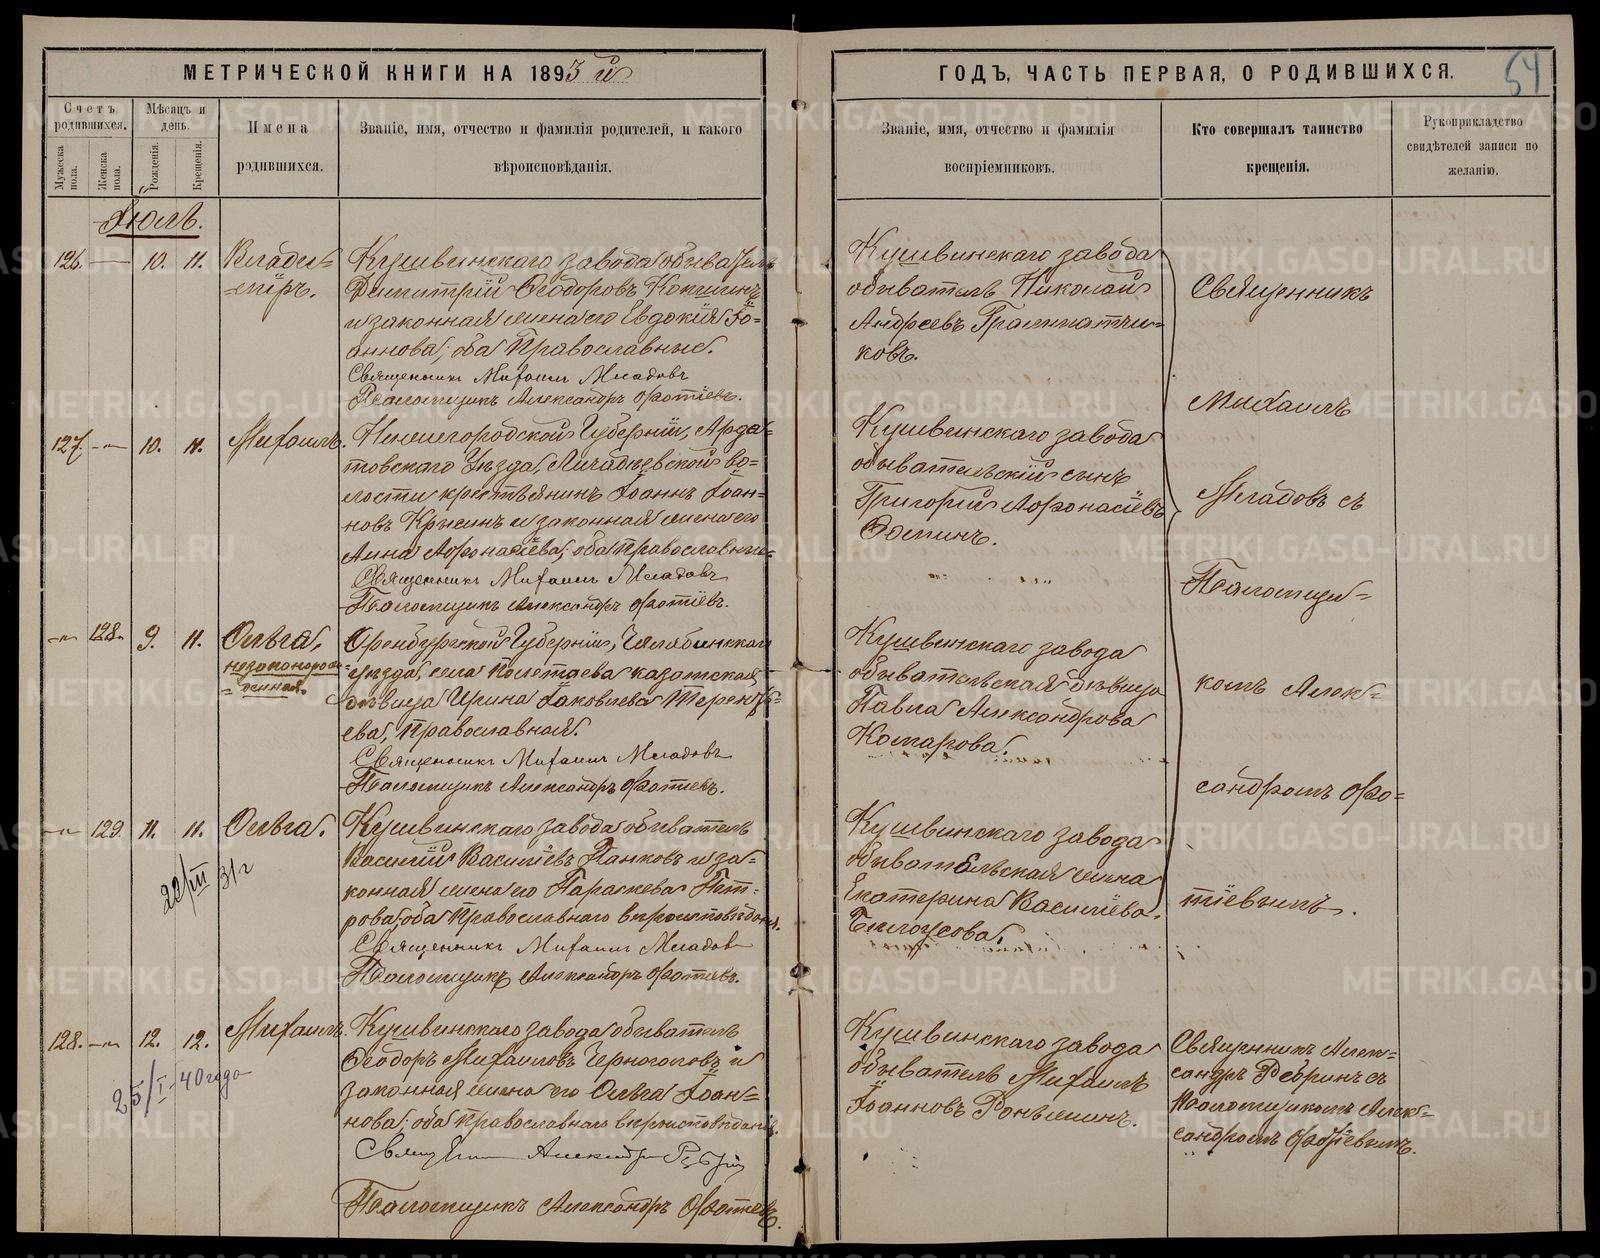 МЕТРИЧЕСКОЙ КНИГИ НА 1893 й
ГОДЪ, ЧАСТЬ ПЕРВАЯ, О РОДИВШИХСЯ.
54
Счетъ родившихся.
Мужеска пола.
Женска пола.
Мѣсяцъ и день.
Рожденія.
Крещенія.
Имена
родившихся.
Званіе, имя, отчество и фамилія родителей, и какого
вѣроисповѣданія.
Званіе, имя, отчество и фамилія
воспріемниковъ.
Кто совершалъ таинство
крещенія.
Рукоприкладство
свидѣтелей записи по
желанію.
Іюль.
126. 10. 11. Влади-
міръ.
Кушвинскаго завода обыватель
Димитрій Ѳеодоровъ
и законная жена его Евдокія Іо-
аннова, оба Православные.
Священникъ Михаилъ Младовъ
Псаломщикъ Александръ Фотіевъ.
Кушвинскаго завода
обыватель Николай
Андреевъ Грамматчи-
ковъ.
Священникъ
Михаилъ
Младовъ съ
Псаломщи-
комъ Алек-
сандромъ Фо-
тіевымъ.
127. 10. 11. Михаилъ.
Нижегородской Губерніи, Арда-
товскаго Уѣзда, Личадѣевской во-
лости крестьянинъ Іоаннъ Іоан-
новъ Крысинъ и законная жена его
Анна Афонасіева, оба православные.
Священникъ Михаилъ Младовъ
Псаломщикъ Александръ Фотіевъ.
Кушвинскаго завода
обывательскій сынъ
Григорій Афонасіевъ
Ѳоминъ.
128. 9. 11. Ольга,
незаконорож-
денная.
Оренбургской Губерніи, Челябинскаго
уѣзда, села Полетаева казатская
дѣвица Ирина Іаковлева Терентъ-
ева, Православная.
Священникъ Михаилъ Младовъ
Псаломщикъ Александръ Фотіевъ.
Кушвинскаго завода
обывательская дѣвица
Павла Александрова
Комарова.
129. 11. 11. Ольга.
20/III 31 г
Кушвинскаго завода обыватель
Василій Василіевъ Панковъ и за-
конная жена его Параскева Пет-
рова, оба Православнаго вѣроисповѣданія.
Священникъ Михаилъ Младовъ
Псаломщикъ Александръ Фотіевъ.
Кушвинскаго завода
обывательская жена
Екатерина Василіева
Бѣлоусова.
128. 12. 12. Михаилъ.
25/I 40 года
Кушвинскаго завода обыватель
Ѳеодоръ Михаиловъ Черноголовъ и
законная жена его Ольга Іоан-
нова, оба православнаго вѣроисповѣданія.
Священникъ Александръ
Псаломщикъ Александръ Фотіевъ.
Кушвинскаго завода
обыватель Михаилъ
Іоанновъ
Священникъ Алек-
сандръ съ
Псаломщикомъ Алек-
сандромъ Фотіевымъ.
METRIKI.GASO-URAL.RU